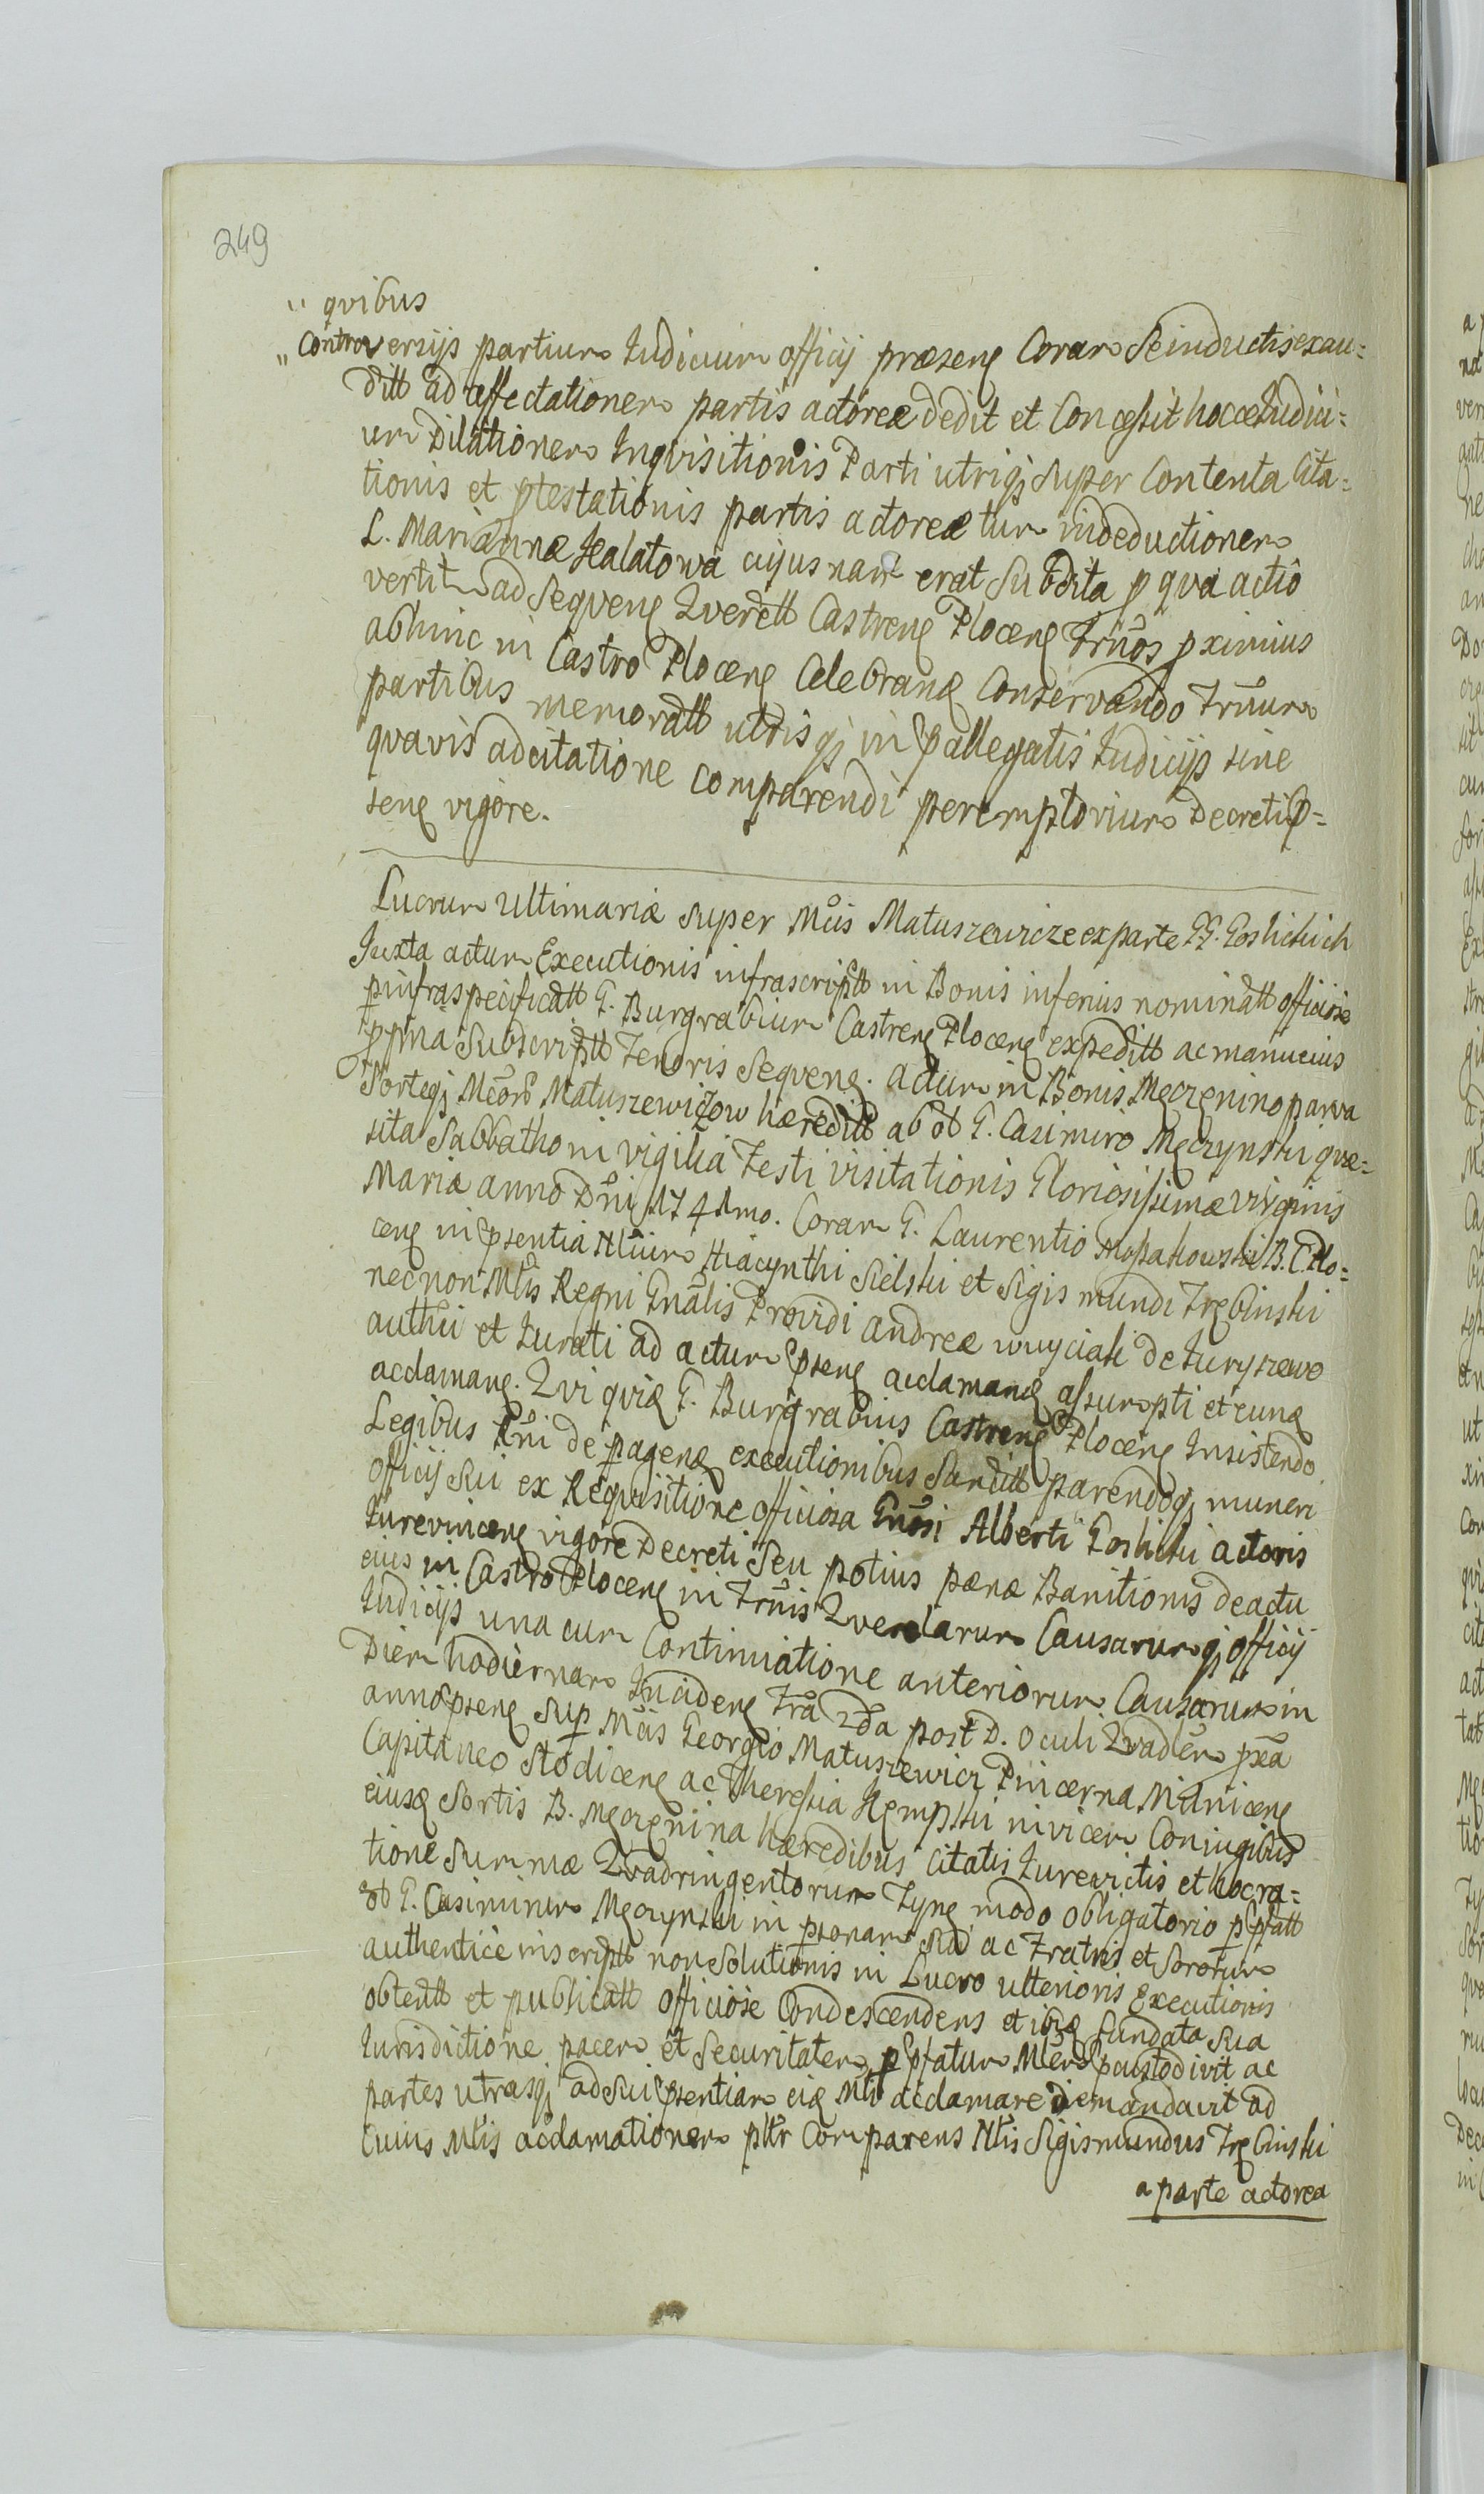 249
" qvibus
" Controversijs partium Iudicium officij præseng Coram Se inductis exau=
ditt ad affectationem partis actoreæ dedit et Concessit hocce Iudici=
um Dilationem Inqvisitionis Parti utriqj super Contenta Cita=
tionis et ptestationis partis actoreæ tum in deductionem
L. Mariannæ Halatowa cujusnam erat Subdita p qva actio
vertit ad Seqveng Qverell Castreng Ploceng Trnos pximius
abhinc in Castro Ploceng Celebrang Conservando Trnum
partibus memoratt utrisqj in pallegatis Iudicijs sine
qvavis adcitatione comparendi peremptorium Decreti p=
seng vigore.
Lucrum Ultimariæ super Mcis Matuszewicze ex parte GG. Goslickich
Iuxta actum Executionis infrascriptt in Bonis inferius nominatt officiose
p infraspecificatt G. Burgrabium Castreng Ploceng expeditt ac manu eius
ppria Subscriptt Tenoris Seqveng. Actum in Bonis Męczenino parva
Sorteqj Mcorum Matuszewiczow hæreditt ab ol G. Casimiro Męczynski qvæ=
sita Sabbatho in vigilia Festi visitationis Gloriosissimæ virginis
Mariæ anno Dni 1741mo. Coram G. Laurentio B. C. Plo=
ceng in psentia Nlium Hiacynthi Sielski et Sigismundi Trębinski
necnon Mlis Regni Gnalis Providi Andreæ de Turyszewo
authci et Iurati ad actum pseng acclamang assumpti et eung
acclamang. Qvi qvig G. Burgrabius Castreng Ploceng Insistendo
Legibus Rni de pageng executionibus Sancitt parendoqj muneri
officij Sui ex Reqvisitione officiosa Gnosi Alberti Goslicki actoris
Iurevinceng vigore Decreti Seu potius pænæ Banitionis de actu
eius in Castro Ploceng in Trnis Qverelarum Causarumqj officij
Iudicijs una cum Continuatione anteriorum Causarum in
Diem hodiernam Incideng Fra 2da post D. Oculi Qvadlem pxa
anno pseng Sup Mcis Georgio Matuszewicz Pincerna Minsceng
Capitaneo Stodiceng ac Theresia Kempski invicem Coniugibus
eiusg Sortis B. Męczenina hæredibus Citatis Iurevictis et hoc ra=
tione Summæ Qvadringentorum Tyng modo obligatorio p pfatt
ol G. Casimirum Męczynski in psonam Sua ac Fratris et Sororum
authentice inscriptt non Solutionis in Lucro ulterioris Executionis
obtentt et publicatt officiose Condescendens et ibig fundata Sua
Iurisdictione pacem et Securitatem p pfatum Mlem pcustodivit ac
partes utrasqj ad Sui psentiam eig Mli acclamare demandavit ad
Cuius Mlis acclamationem pltr Comparens Nlis Sigismundus Trębinski
a parte actorea